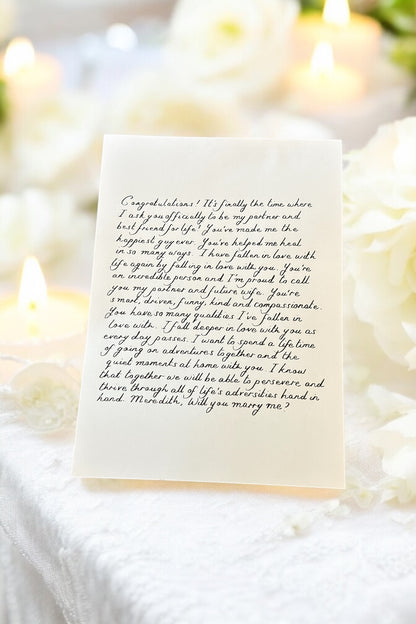 Congratulations! It's finally the time where
I ask you officially to be my partner and
best friend for life! You've made me the
happiest guy ever. You've helped me heal
in so many ways. I have fallen in love with
life again by falling in love with you. You're
an incredible person and I'm proud to call
you my partner and future wife. You're
smart, driven, funny, kind and compassionate.
You have so many qualities I've fallen in
love with. I fall deeper in love with you as
every day passes. I want to spend a life time
of going on adventures together and the
quiet moments at home with you. I know
that together we will be able to persevere and
thrive through all of life's adversities hand in
hand. Meredith, Will you marry me?